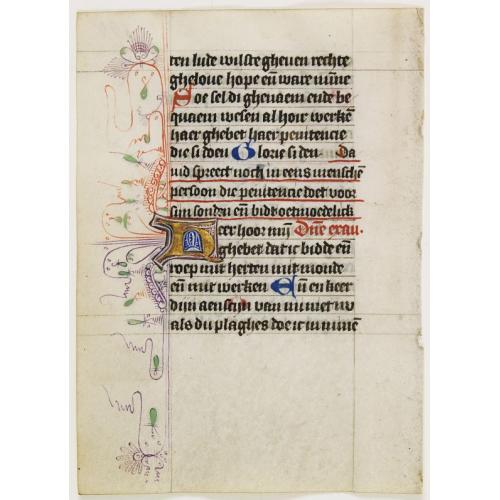 ten lude wilste gheven rechte
ghelove hope eñ ware mīne
Soe sel di ghenaem ende be
quaem wesen al hoir werkē
haer ghebet haer penitencie
die si doen Glorie si den Da
vid spreect noch in eens menschē
persoon die penitencie doet voor
sijn sonden eñ bidt oetmoedelick
Heer hoor mijn Dñe exau.
ghebet dat ic bidde eñ
roep mit herten mit monde
eñ mit werken Eñ en keer
dijn aenscijn van mi niet w
als du plaghes doe ic in mīnē